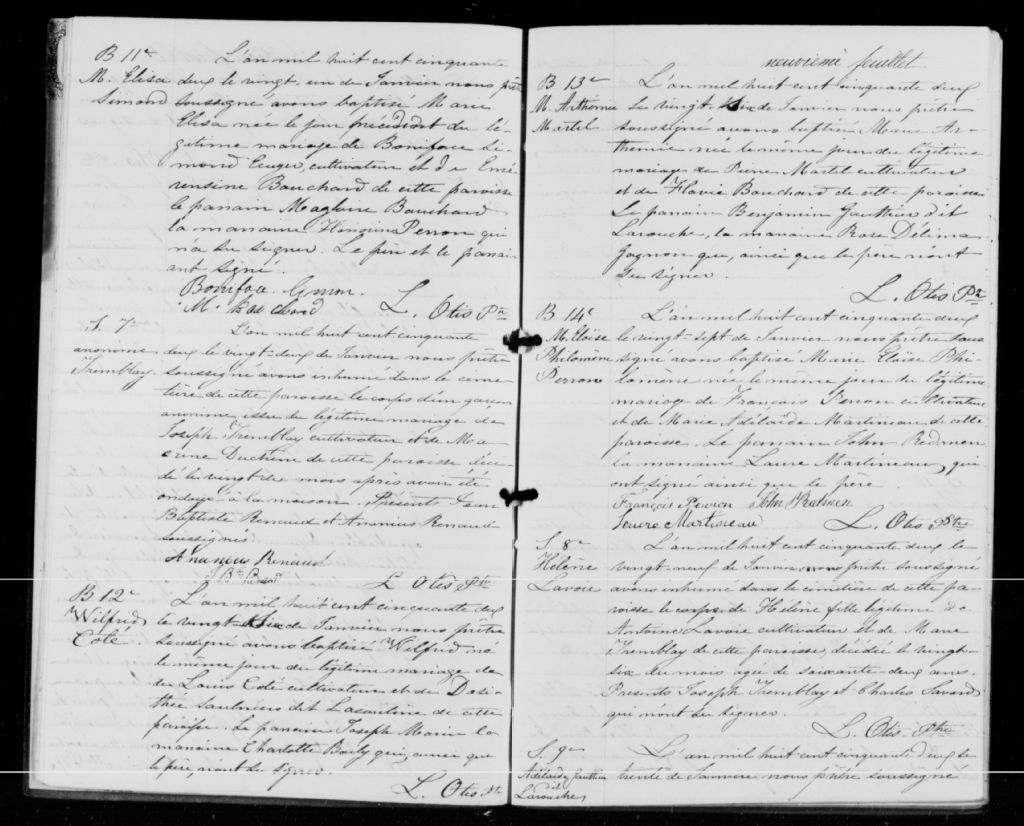 B 11e
M. Elisa
Simond
L'an mil huit cent cinquante
deux le vingt un de Janvier nous prêtre
soussigné avons baptisé Marie
Elisa née le jour précédent du lé-
gitime mariage de Boniface Si-
mond, cultivateur et de Emé-
rensine Bouchard de cette paroisse
le parrain Magloire Bouchard
la marraine Honorine Perron qui
n'a su signer. Le père et le parrain
ont signé.
Boniface
M. Bouchard
L. Otis Ptre
S. 7e
anonime
Tremblay
L'an mil huit cent cinquante
deux le vingt-deux de Janvier nous prêtre
soussigné avons inhumé dans le cime-
tière de cette paroisse le corps d'un garçon
anonime issu du légitime mariage de
Joseph Tremblay cultivateur et de Ma-
Duchène de cette paroisse décé-
dé le vingt du mois après avoir été
ondoyé à la maison. Présents Jean
Baptiste Renaud et Ananias Renaud
soussignés
Ananias Renaud
J Bte Renaud
L. Otis Ptre
B 12e
Wilfrid
Coté
L'an mil huit cent cinquante deux
le vingt six de Janvier nous prêtre
soussigné avons baptisé Wilfrid né
le même jour du légitime mariage de
de Louis Coté cultivateur et de Dosi-
thée Saulniers dit Lasaulnie de cette
paroisse. Le parrain Joseph Marie la
marraine Charlotte Boily qui, ainsi que
le père, n'ont su signer.
L. Otis Ptre
neuvième feuillet
B 13e
M. Arthémie
Martel
L'an mil huit cent cinquante deux
le vingt six de Janvier nous prêtre
soussigné avons baptisé Marie Ar-
thémie née le même jour du légitime
mariage de Pierre Martel cultivateur
et de Flavie Bouchard de cette paroisse
Le parrain Benjamin Gauthier dit
Larouche, la marraine Rose Délima
Gagnon qui, ainsi que le père n'ont
su signer.
L. Otis Ptre
B 14e
M. Eloïse
Philomène
Perron
L'an mil huit cent cinquante deux
le vingt-sept de Janvier nous prêtre sous
signé avons baptisé Marie Eloïse Phi-
lomène née le même jour du légitime
mariage de François Perron cultivateur
et de Marie Adélaïde Martineau de cette
paroisse. Le parrain John Redmen
la marraine Laure Martineau, qui
ont signé ainsi que le père.
François Perron John Redmen
Leuvre Martineau
L. Otis Ptre
S. 8e
Hélène
Lavoie
L'an mil huit cent cinquante deux le
vingt-neuf de Janvier nous prêtre soussigné
avons inhumé dans le cimetière de cette pa-
roisse le corps de Hélène fille légitime de
Antoine Lavoie cultivateur et de Marie
Tremblay de cette paroisse, décédée le vingt-
six du mois agée de soixante deux ans.
Présents Joseph Tremblay et Charles Savard
qui n'ont su signer.
L. Otis Ptre
S. 9e
Adélaïde Gauthier
dit
Larouche
L'an mil huit cent cinquante deux le
trente de Janvier nous prêtre soussigné